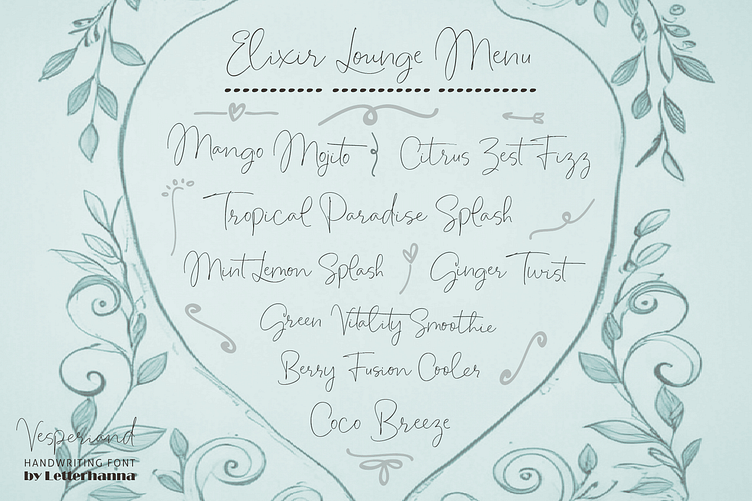 Elixir Lounge Menu
Mango Mojito Citrus Zest Fizz
Tropical Paradise Splash
Mint Lemon Splash Ginger Twist
Green Vitality Smoothie
Berry Fusion Cooler
Coco Breeze
Vesperhand
HANDWRITING FONT
by Letterhanna